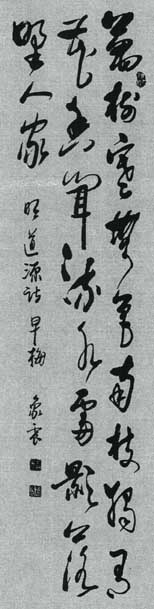 萬樹寒無色南枝獨有
花香聞流水處影落
野人家
明道源詩早梅